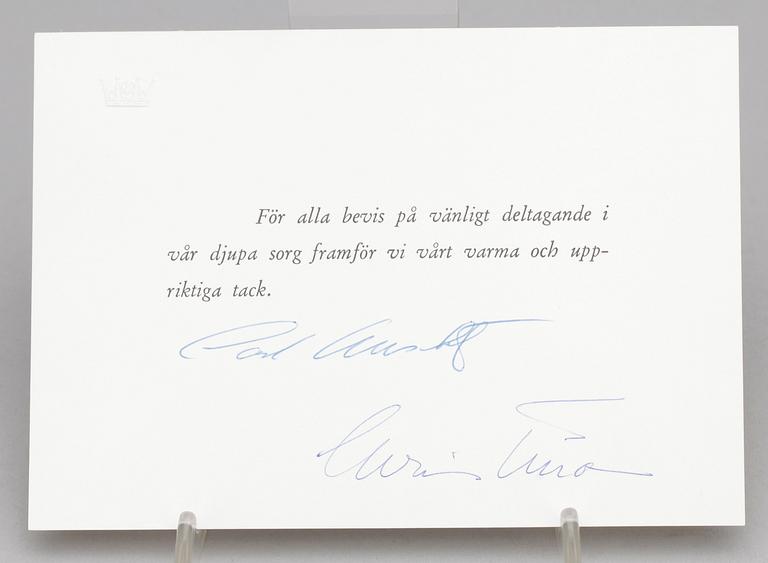 För alla bevis på vänligt deltagande i
vår djupa sorg framför vi vårt varma och upp-
riktiga tack.
Carl Gustaf
Christina